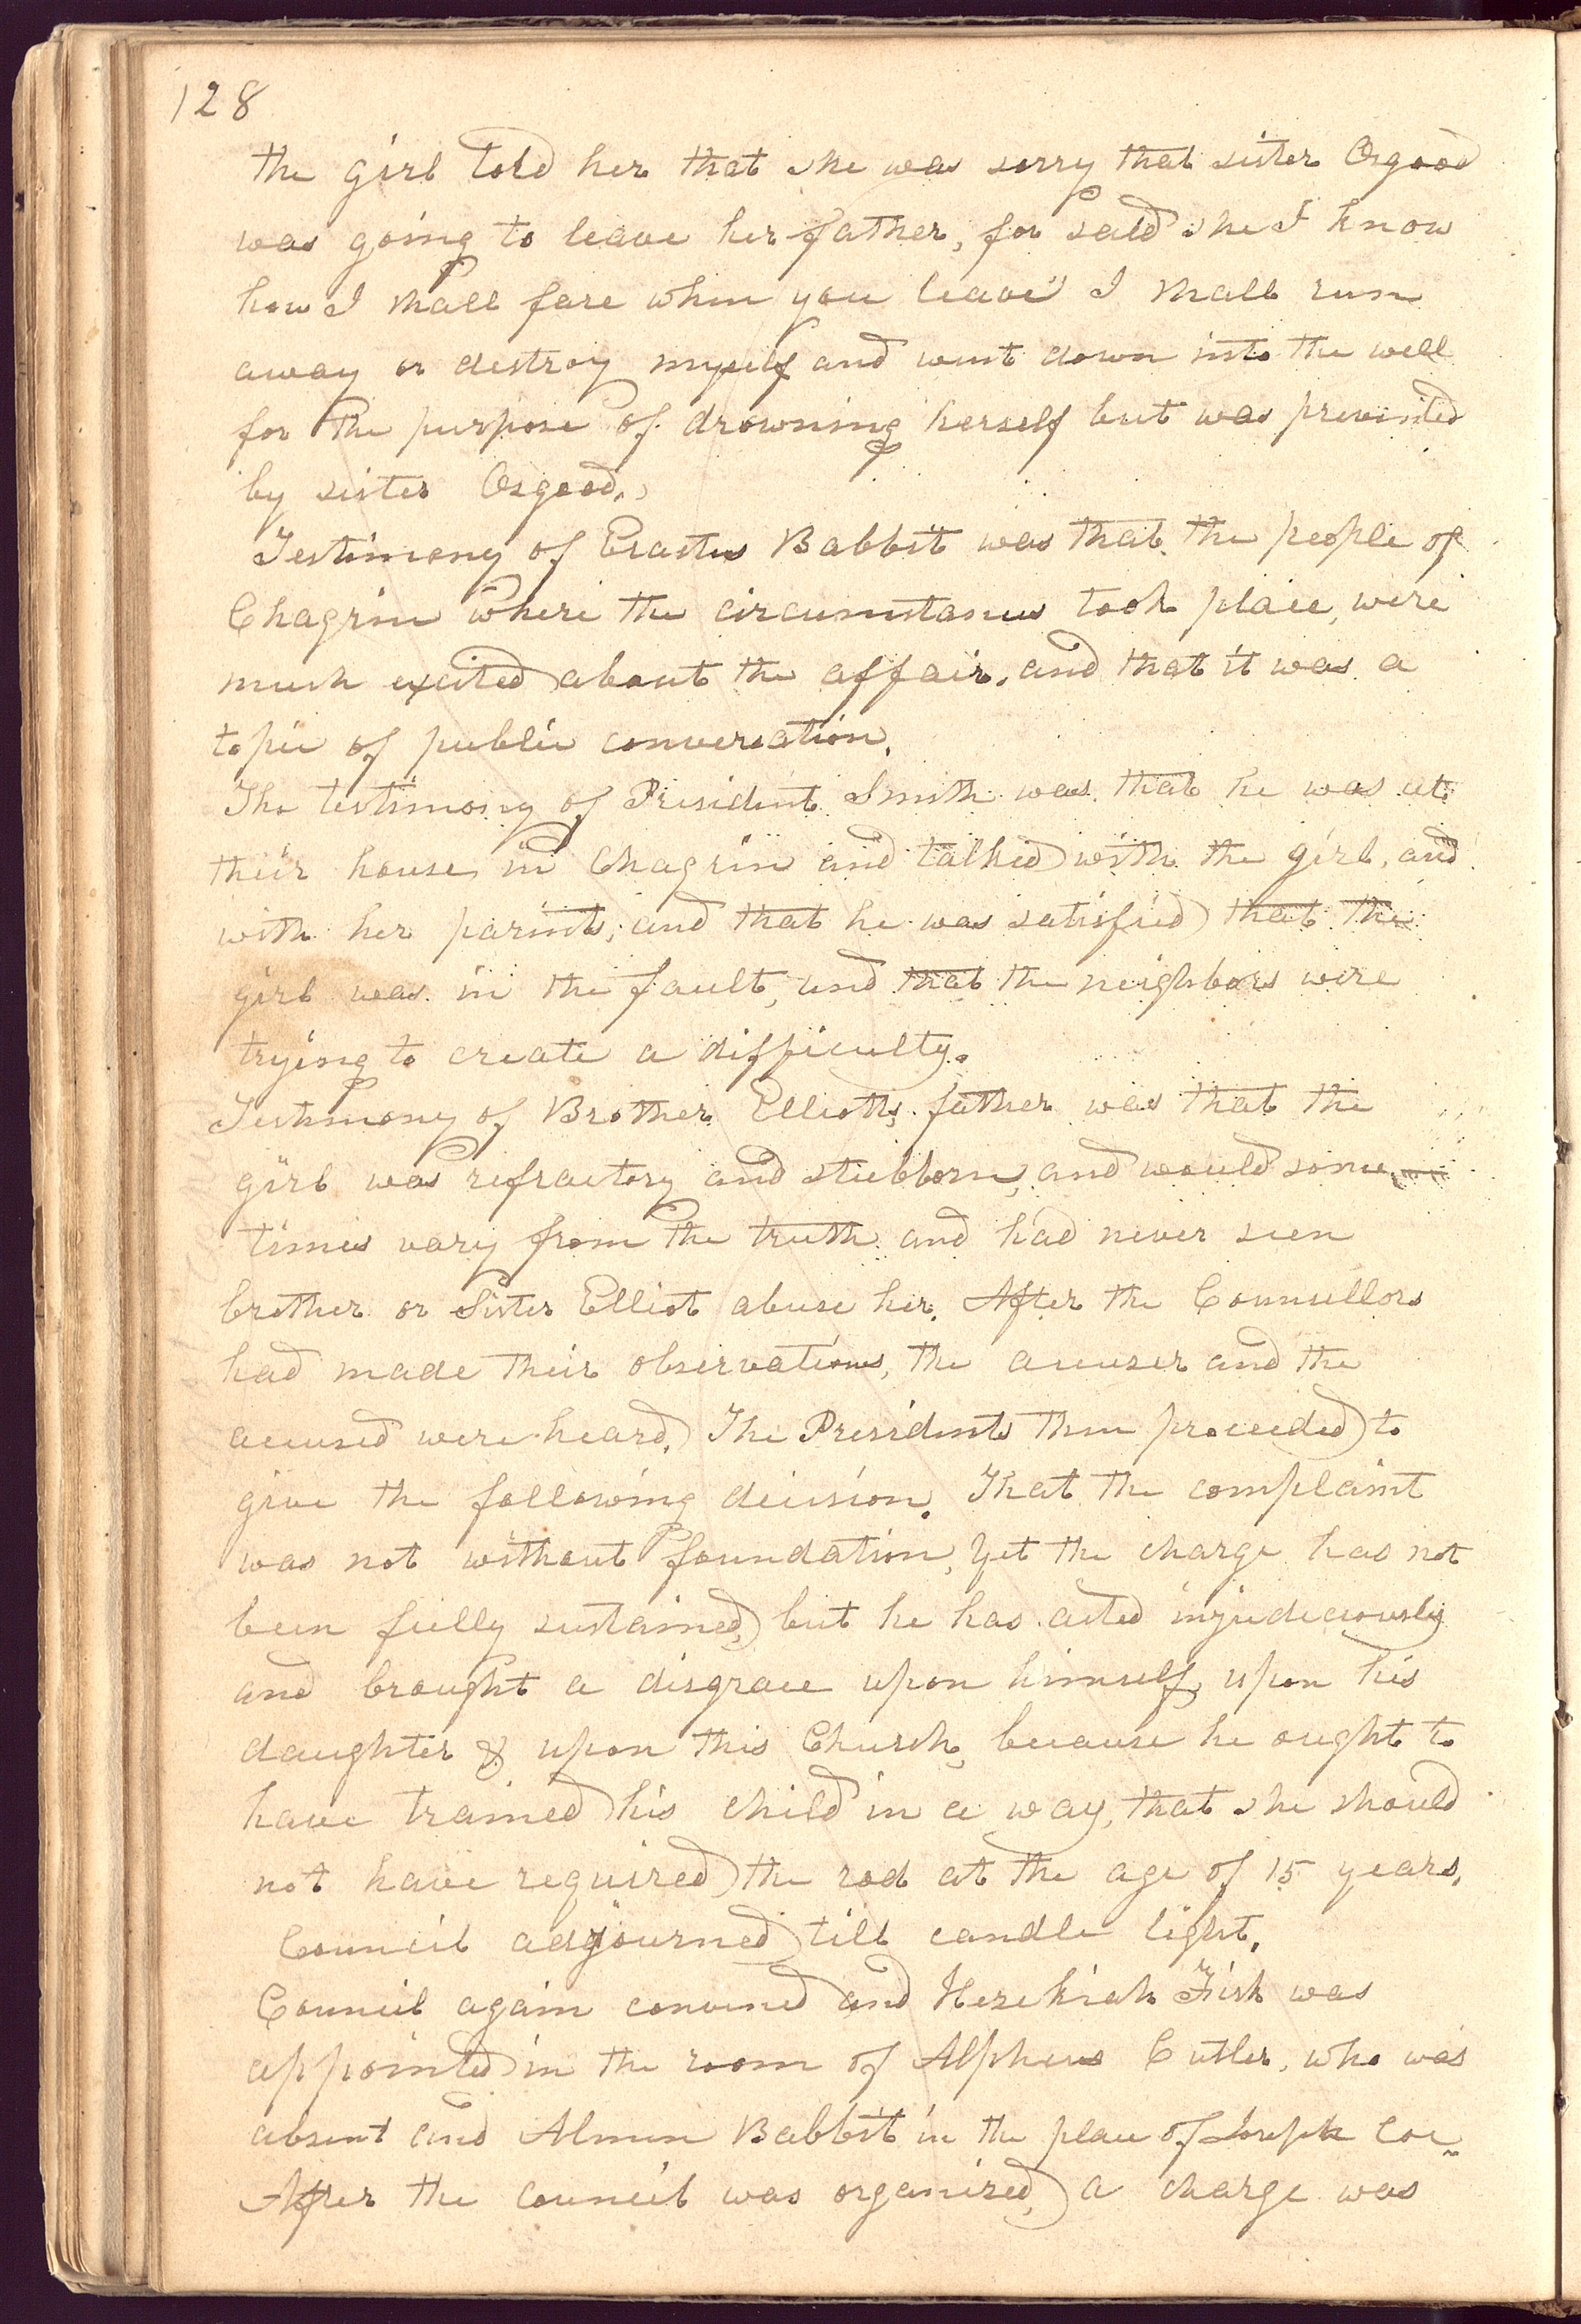 128
the girl told her that she was sorry that sister Osgood
was going to leave her father, for said she I know
how I shall fare when you leave I shall run
away or destroy myself and went down into the well
for the purpose of drowning herself but was prevented
by sister Osgood.
Testimony of Erastus Babbit was that the people of
Chagrin where the circumstances took place, were
much excited about the affair, and that it was a
topic of public conversation.
The testimony of President Smith was that he was at
their house, in Chagrin and talked with the girl, and
with her parints, and that he was satisfied that the
girl was in the fault, and that the neighbors were
trying to create a difficulty.
Testimony of Brother Elliotts, father was that the
girl was refractory and stubborn, and would some
times vary from the truth and had never seen
brother or Sister Elliot abuse her. After the Counsellors
had made their observations, the accuser and the
accused were heard. The Presidents then proceeded to
give the following decision. That the complaint
was not without foundation, Yet the charge has not
been fully sustained, but he has acted injudiciously
and brought a disgrace upon himself, upon his
daughter & upon this Church, because he ought to
have trained his child in a way, that she should
not have required the rod at the age of 15 years.
Council adjourned till candle light.
Council again convened and Hezekiah Fisk was
appointed in the room of Alpheus Cutler, who was
absent and Almon Babbit in the place of Joseph Coe
After the council was organized, a charge was